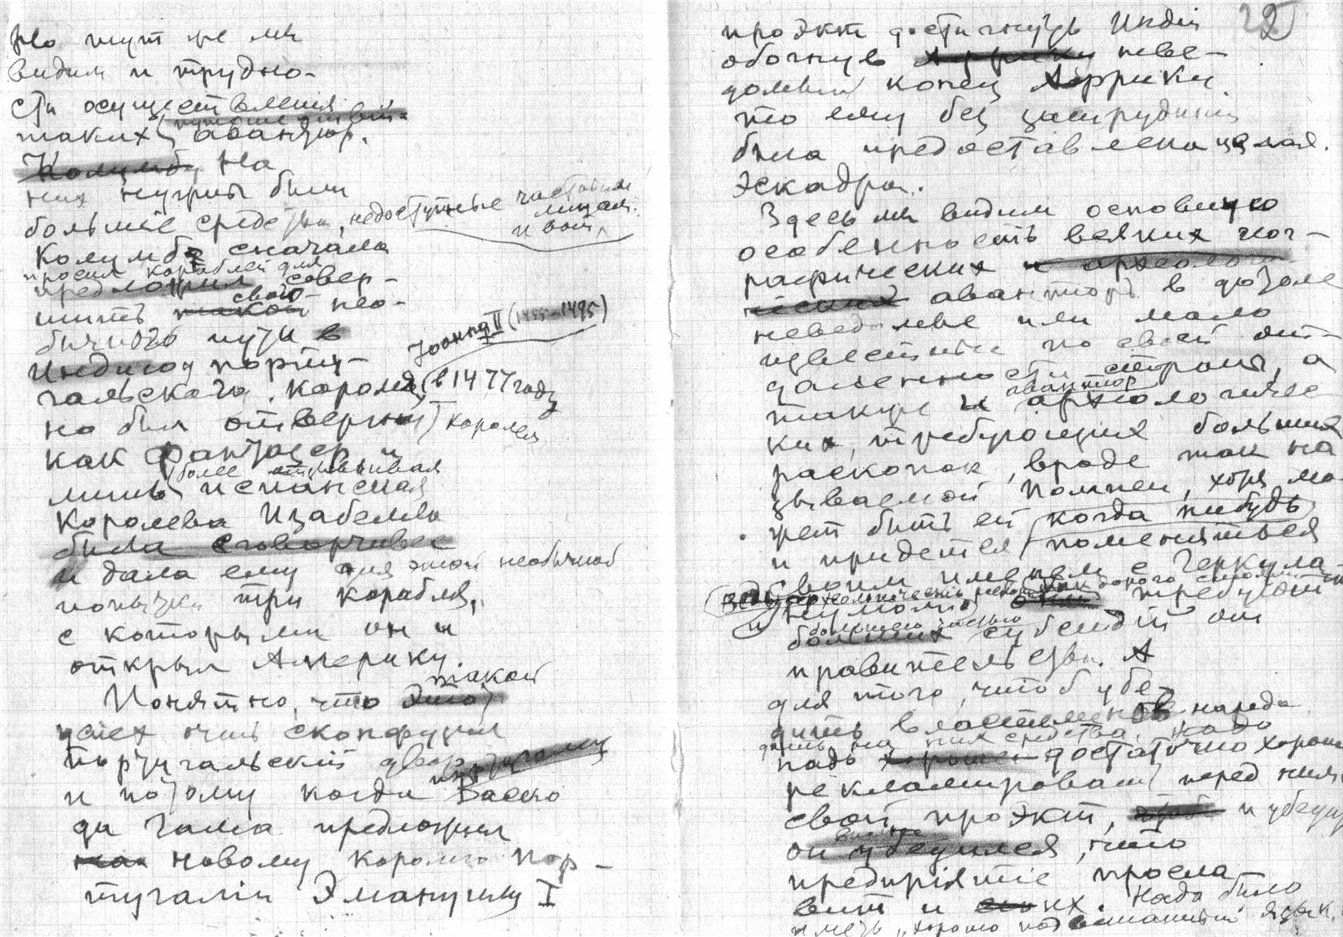 Но тут же мы
видим и трудно-
сти осуществления
таких авантюр.
Колумбу На
них нужны были
большіе средства, недоступные частным
лицам.
и вот,
Колумбъ сначала
просил кораблей для
предложил совер-
шить такой своего нео-
бычного пути в
Индию у порту-
Іоанна II (1455-1495)
гальскаго короля (в 1477 году
но был отвергнут) королем
как фантазер и
лишь (более отзывчивая
испанская
Королева Изабелла
была сговорчивее
и дала ему для этой необычной
попытки три корабля,
с которыми он и
открыл Америку.
такой
Понятно, что это
успех очень сконфузил
Португальскій двор
и потому когда Васко
да Гама предложил
новому королю Пор-
тугаліи Эмануилу I
22
проэкт достигнуть Индіи
обогнув Африку неве-
домый конец Африки.
то ему без затрудненій
была предоставлена целая
эскадра.
Здесь мы видим основную
особенность всяких гео-
графических и археологи-
ческих авантюр в дозоле
неведомые или мало
известные по своей от-
даленности страны, а
авантюр
также и археологичес
ких, требующих больших
раскопок, вроде так на
зываемой Помпеи, хотя мо-
жет быть ей когда нибудь
и придется поменяться
своим именем с Геркула-
нумом) они требуют
большею частью
больших субсидій от
правительства. А
для того, чтоб убе-
дить властелинов народа
дать на них средства, надо
надо хорошо достаточно хорошо
рекламировать перед ним
свой проэкт, и убедить
он убедился, что
предпріятіе просла
вит и их. Надо было
иметь „хорошо подвешанный язык.